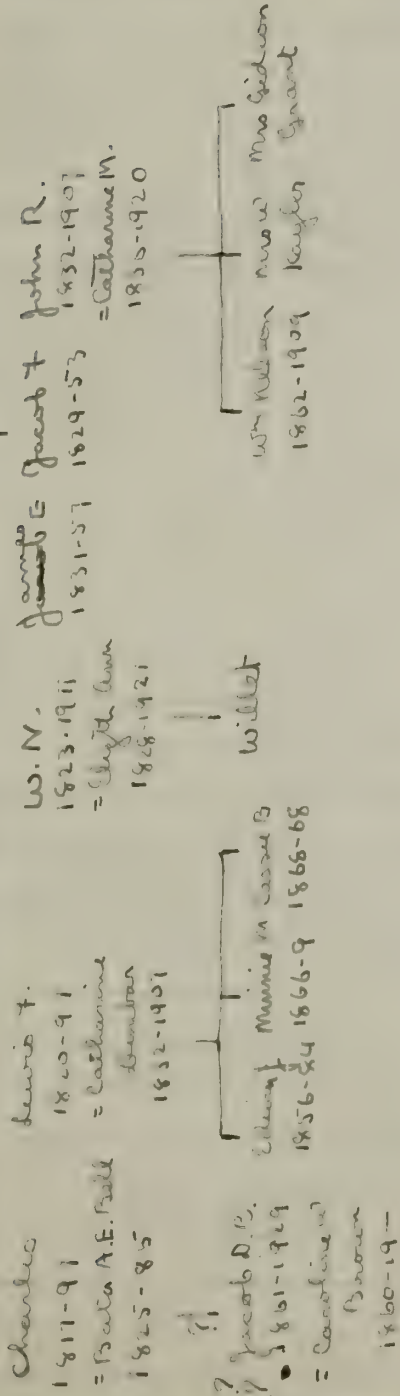 Charles
1817-91
= Beata A.E. Bell
1825-85
?
? Jacob D.
1861-1929
= Caroline W
Brown
1860-19—
Lewis F.
1820-91
= Catharine
Dunbar
1832-1907
Edward J
1856-84
Minnie M
1866-9
Cassie B
1868-68
W.N.
1823-1911
= Elizth Ann
1828-1921
Willet
James E
1831-57
Jacob F
1829-53
John R.
1832-1907
= Catharine M.
1830-1920
Wm Nelson
1862-1909
Mrs W
Kaylor
Mrs Gideon
Grant